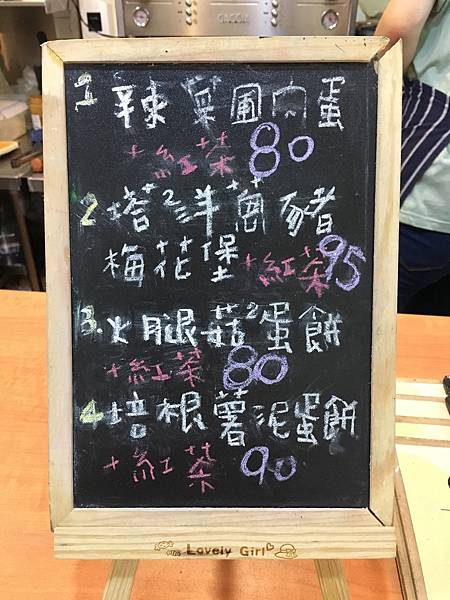 GAGGIA
1 辣菜圃肉蛋
+紅茶 80
2 塔²洋蔥豬
梅花堡 +紅茶95
3. 火腿菇²蛋餅
+紅茶 80
4. 培根薯泥蛋餅
+紅茶 90
Lovely Girl